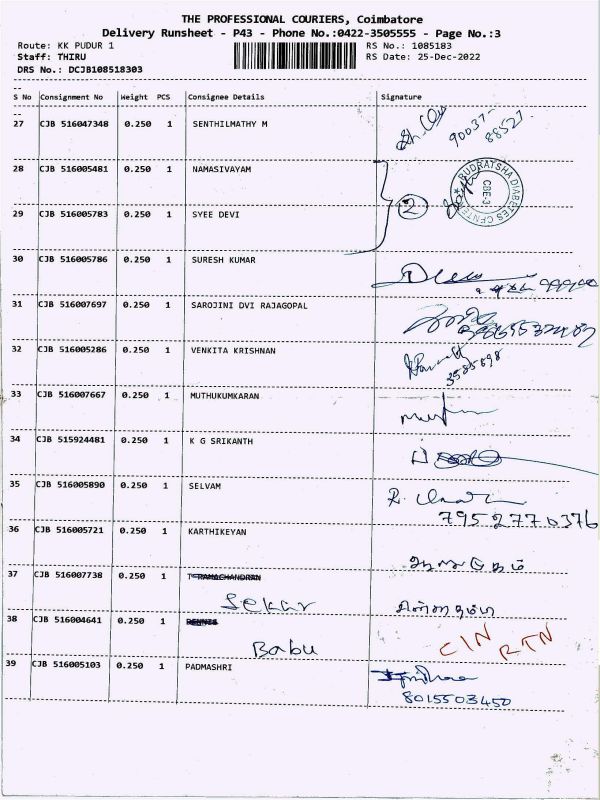 THE PROFESSIONAL COURIERS, Coimbatore
Delivery Runsheet - P43 - Phone No.:0422-3505555 - Page No.:3
Route: KK PUDUR 1 RS No.: 1085183
Staff: THIRU RS Date: 25-Dec-2022
DRS No.: DCJB108518303
S No Consignment No Weight PCS Consignee Details Signature
27 CJB 516047348 0.250 1 SENTHILMATHY M
90037-
88527
28 CJB 516005481 0.250 1 NAMASIVAYAM
RUDRATSHA DIABETES CENTE
CBE-3
2
29 CJB 516005783 0.250 1 SYEE DEVI
30 CJB 516005786 0.250 1 SURESH KUMAR
31 CJB 516007697 0.250 1 SAROJINI DVI RAJAGOPAL
32 CJB 516005286 0.250 1 VENKITA KRISHNAN
33 CJB 516007667 0.250 1 MUTHUKUMKARAN
34 CJB 515924481 0.250 1 K G SRIKANTH
35 CJB 516005890 0.250 1 SELVAM
7952770376
36 CJB 516005721 0.250 1 KARTHIKEYAN
37 CJB 516007738 0.250 1 T RAMACHANDRAN
Sekar
38 CJB 516004641 0.250 1
Babu
CIN
RTN
39 CJB 516005103 0.250 1 PADMASHRI
8015503450